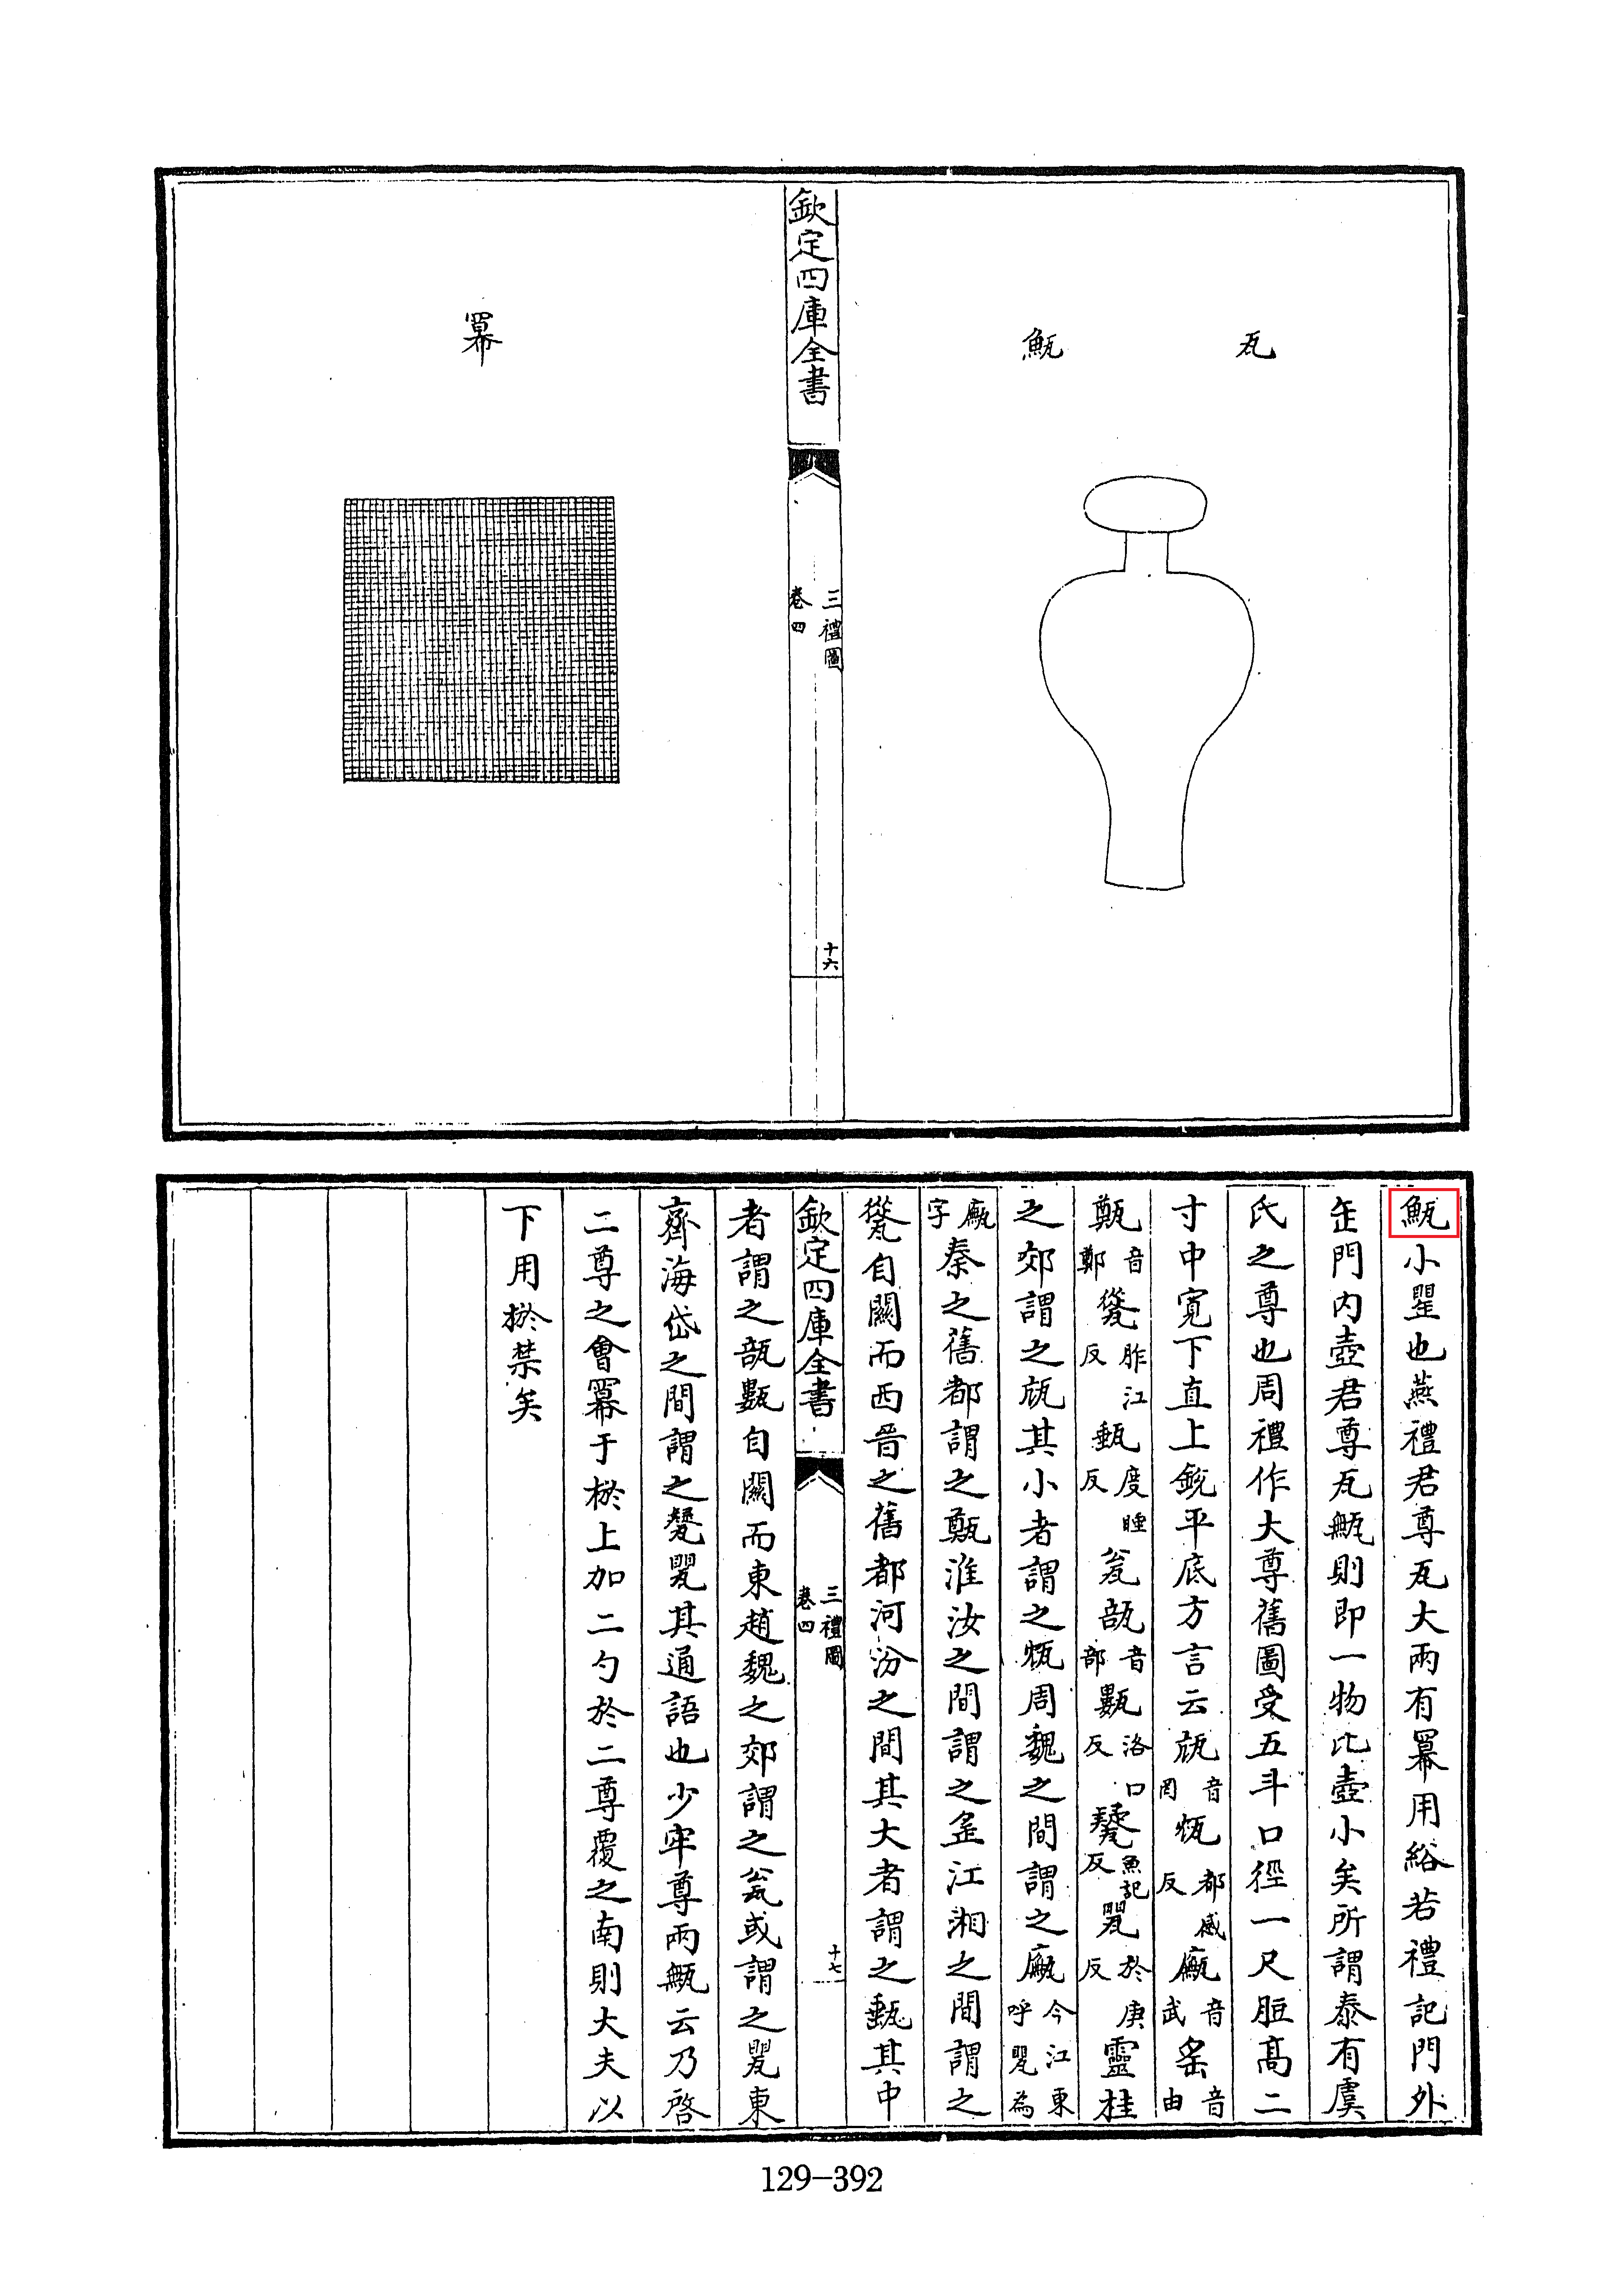 瓦　⿰魚瓦
欽定四庫全書
三禮圖
卷四
十六
冪
⿰魚瓦小罍也燕禮君尊瓦大兩有冪用綌若禮記門外
缶門内壺君尊瓦甒則即一物比壺小矣所謂泰有虞
氏之尊也周禮作大尊舊圖受五斗口徑一尺脰髙二
寸中寛下直上銳平底方言云㼚音罔㼜都感反甒音武䍃音由
㽀音鄭⿱從瓦胙江反甀度睡反瓮瓿音部甊洛口反㽈魚記反甖於庚反靈桂
之郊謂之㼚其小者謂之㼜周魏之間謂之甒今江東呼甖為
甒字秦之舊都謂之㽀淮汝之間謂之䍃江湘之間謂之
⿱從瓦自關而西晉之舊都河汾之間其大者謂之甀其中
欽定四庫全書
三禮圖
卷四
十七
者謂之瓿甊自關而東趙魏之郊謂之瓮或謂之甖東
齊海岱之間謂之㽈甖其通語也少牢尊兩甒云乃啓
二尊之會冪于棜上加二勺於二尊覆之南則大夫以
下用棜禁矣
129-392